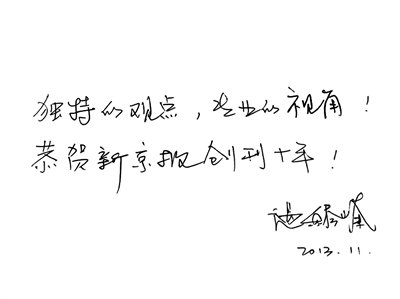 独特的观点，专业的视角！
恭贺新京报创刊十年！
2013.11.